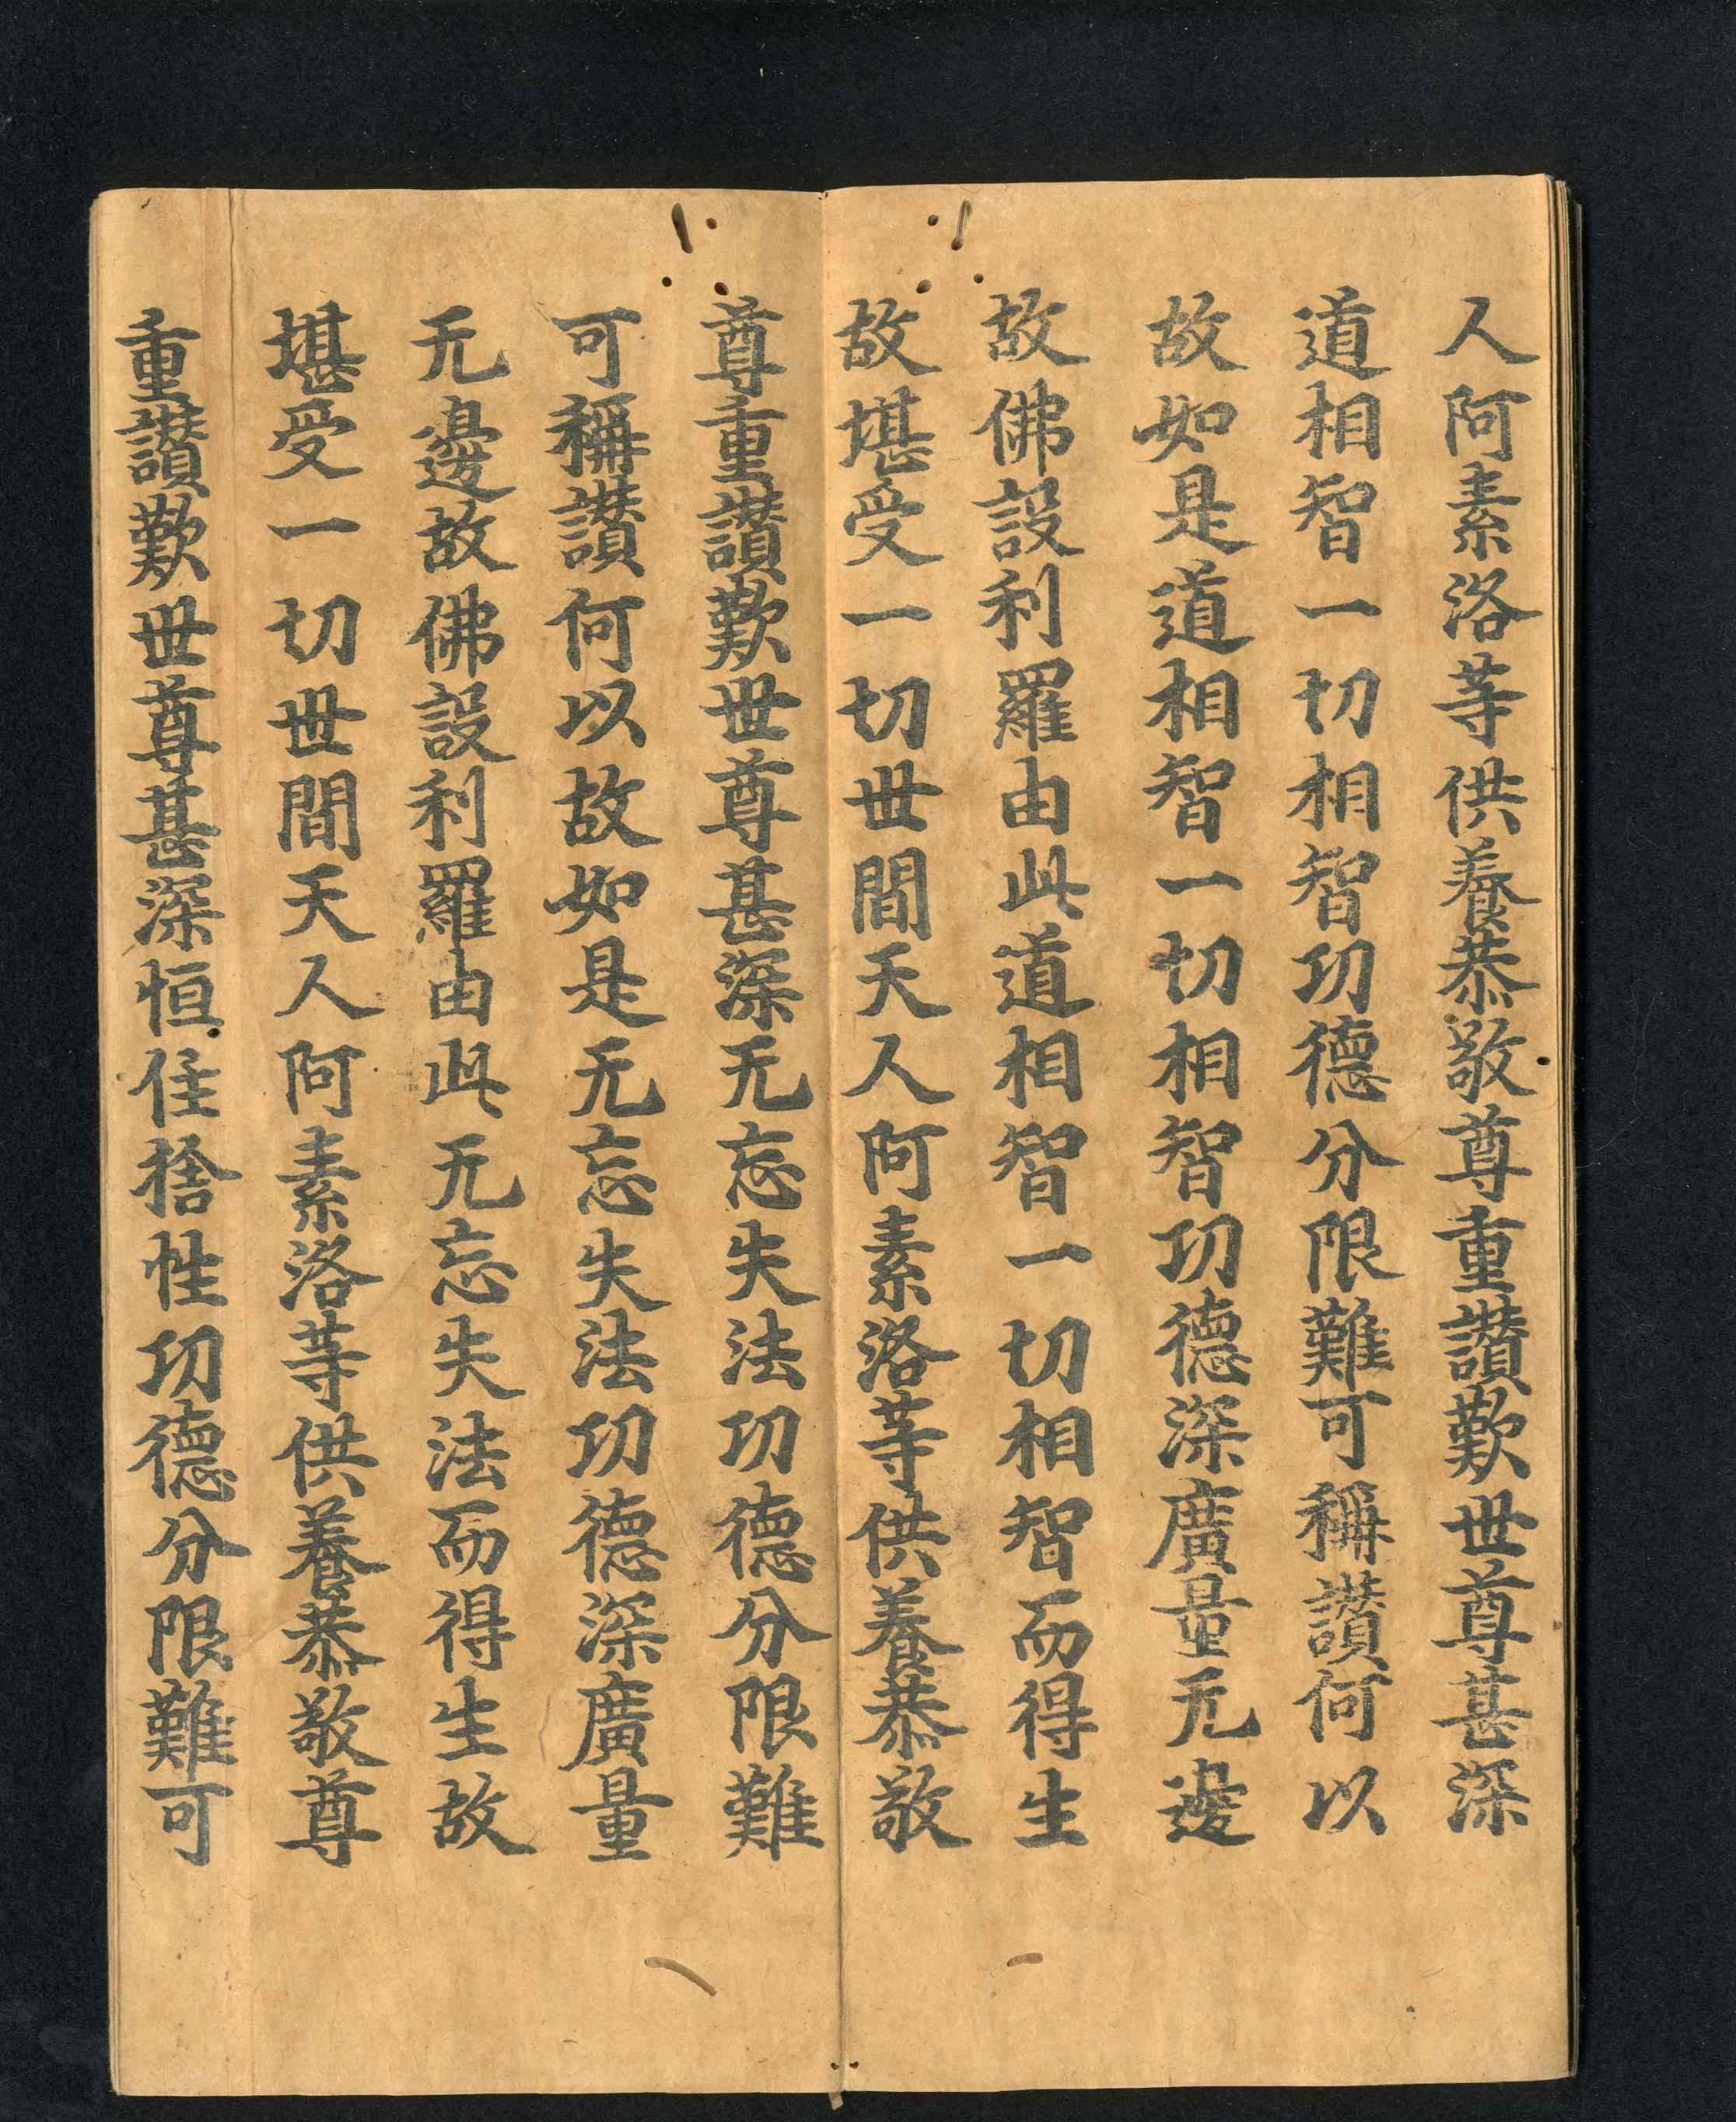 人阿素洛等供養恭敬尊重讃歎世尊甚深
道相智一切相智功德分限難可稱讃何以
故如是道相智一切相智功德深廣量无邊
故佛設利羅由此道相智一切相智而得生
故堪受一切世間天人阿素洛等供養恭敬
尊重讃歎世尊甚深无忘失法功德分限難
可稱讃何以故如是无忘失法功德深廣量
无邊故佛設利羅由此无忘失法而得生故
堪受一切世間天人阿素洛等供養恭敬尊
重讃歎世尊甚深恒住捨性功德分限難可